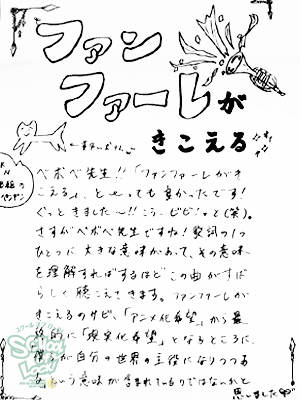 ファン
ファーレが
きこえる
ペポペ先生!!「ファンファーレがき
こえる」、とーっても良かったです!
ぐっときました〜!!こう…ビビ!っと(笑)。
さすがペポペ先生ですね!歌詞の1つ
ひとつに大きな意味があって、その意味
を理解すればするほどこの曲がすば
らしく聴こえてきます。ファンファーレが
きこえるのサビ、「アニメ化希望」から最
終的に「現実化希望」となるところに、
僕らが自分の世界の主役になりつつあ
る、という意味が含まれているのではないかと
思いました